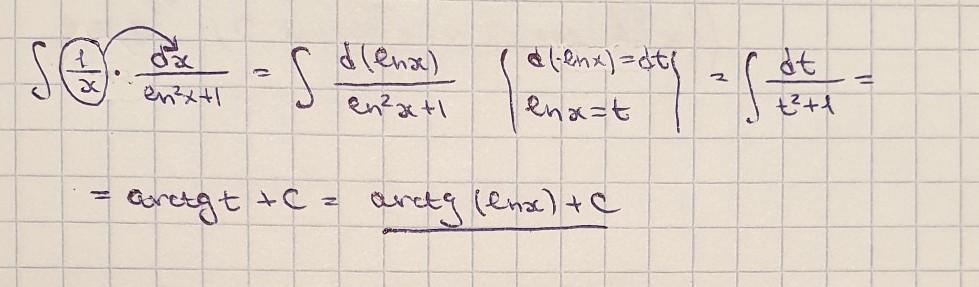 ∫ (1/x) · dx/(ln²x+1) = ∫ d(lnx)/(ln²x+1) { d(lnx)=dt lnx=t } = ∫ dt/(t²+1) =
= arctg t + C = arctg (lnx) + C